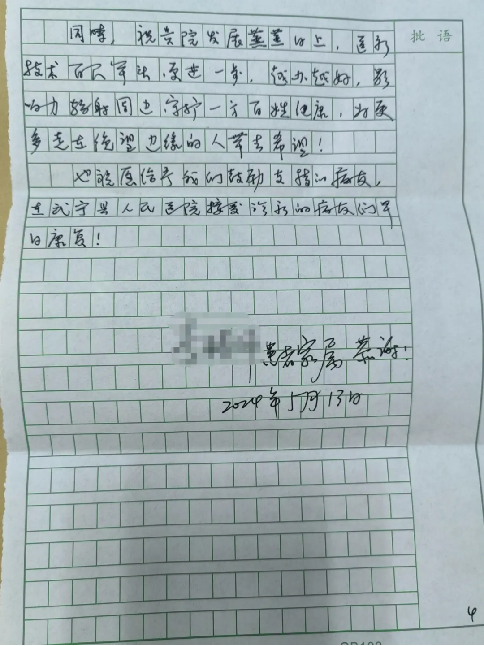 批语
同时，祝贵院发展蒸蒸日上，医疗
技术百尺竿头，更进一步，越办越好，影
响力辐射周边，守护一方百姓健康，为更
多走在绝望边缘的人带去希望！
也祝愿给予我们鼓励支持的病友，
在武宁县人民医院接受治疗的病友们早
日康复！
患者家属 恭谢！
2024年5月13日
4